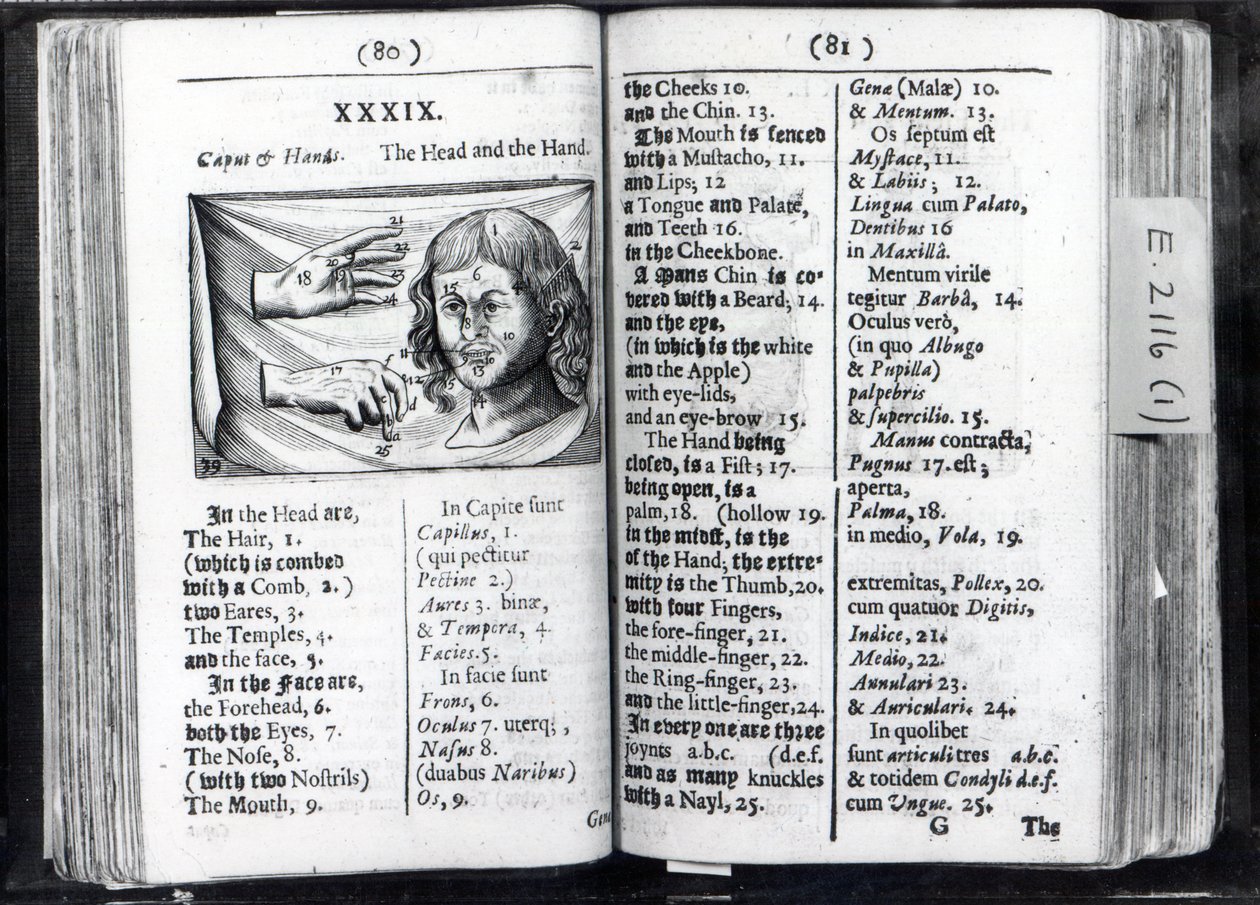 (80)
XXXIX.
Caput & Hands. The Head and the Hand.
21
22
20
18
19
23
24
1
2
6
15
4
8
10
11
9
10
13
12
5
14
17
f
e
c
d
b
a
25
39
In the Head are,
The Hair, 1.
(which is combed
with a Comb, 2.)
two Eares, 3.
The Temples, 4.
and the face, 5.
In the Face are,
the Forehead, 6.
both the Eyes, 7.
The Nose, 8.
(with two Nostrils)
The Mouth, 9.
In Capite sunt
Capillus, 1.
(qui pectitur
Pectine 2.)
Aures 3. binæ,
& Tempora, 4.
Facies. 5.
In facie sunt
Frons, 6.
Oculus 7. uterq; ,
Nasus 8.
(duabus Naribus)
Os, 9.
Gen
(81)
the Cheeks 10.
and the Chin. 13.
The Mouth is fenced
with a Mustacho, 11.
and Lips; 12
a Tongue and Palate,
and Teeth 16.
in the Cheekbone.
A Mans Chin is co-
vered with a Beard; 14.
and the eye,
(in which is the white
and the Apple)
with eye-lids,
and an eye-brow 15.
The Hand being
closed, is a Fist; 17.
being open, is a
palm, 18. (hollow 19.
in the midst, is the
of the Hand; the extre-
mity is the Thumb, 20.
with four Fingers,
the fore-finger, 21.
the middle-finger, 22.
the Ring-finger, 23.
and the little-finger, 24.
In every one are three
joynts a.b.c. (d.e.f.
and as many knuckles
with a Nayl, 25.
Genæ (Malæ) 10.
& Mentum. 13.
Os septum est
Mystace, 11.
& Labiis; 12.
Lingua cum Palato,
Dentibus 16
in Maxillâ.
Mentum virile
tegitur Barbâ, 14.
Oculus verò,
(in quo Albugo
& Pupilla)
palpebris
& supercilio. 15.
Manus contracta,
Pugnus 17. est;
aperta,
Palma, 18.
in medio, Vola, 19.
extremitas, Pollex, 20.
cum quatuor Digitis,
Indice, 21.
Medio, 22.
Annulari 23.
& Auriculari. 24.
In quolibet
sunt articuli tres a.b.c.
& totidem Condyli d.e.f.
cum Ungue. 25.
G The
E. 2116 (1)